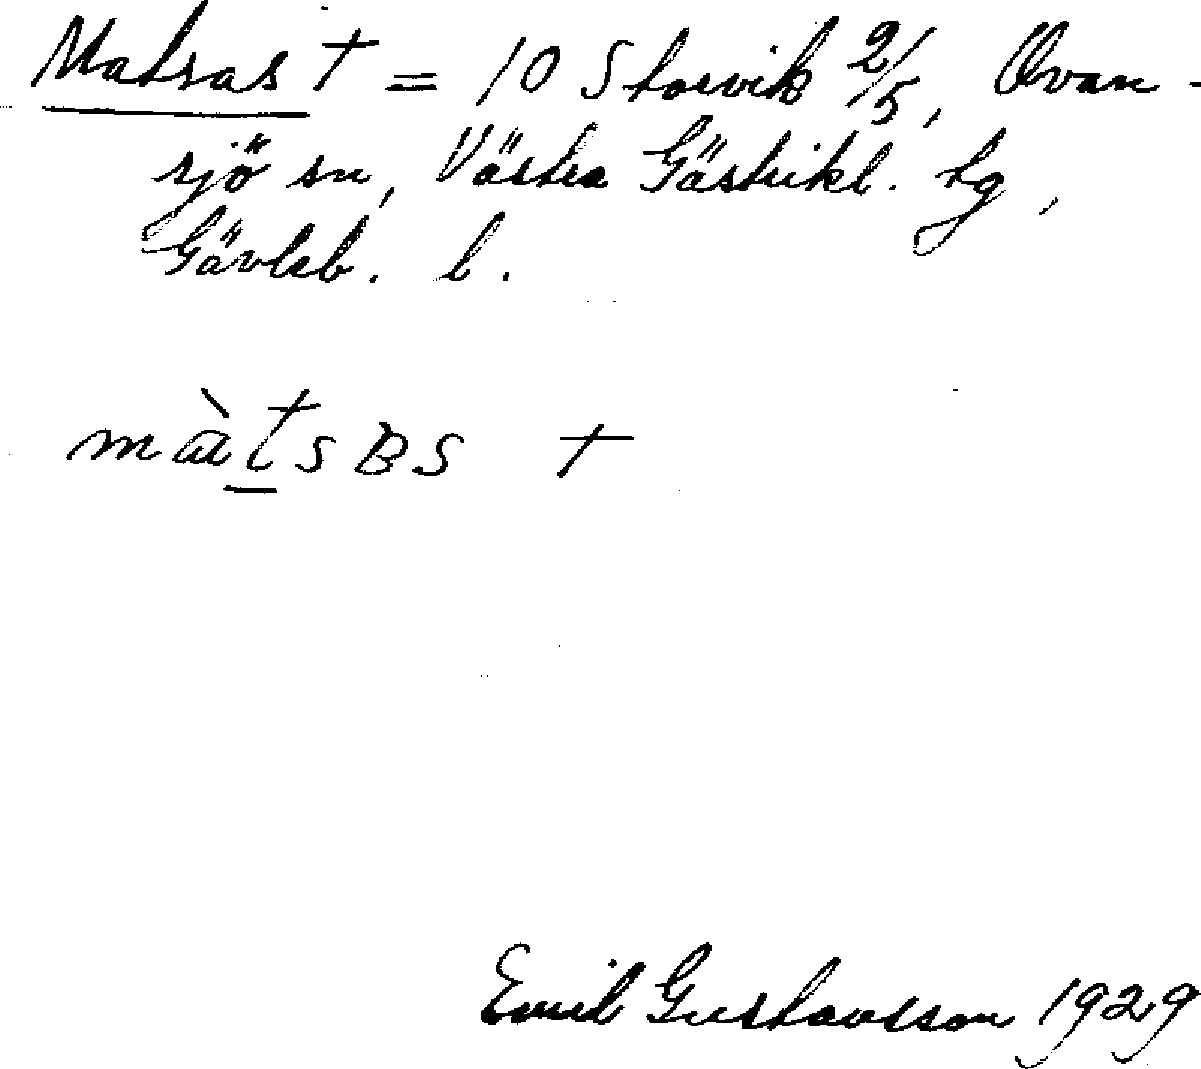 Matsas † = 10 Storvik 2/5, Ovan-
sjö sn, Västra Gästrikl. tg,
Gävleb. l.
màtsBs †
Emil Gustavsson 1929